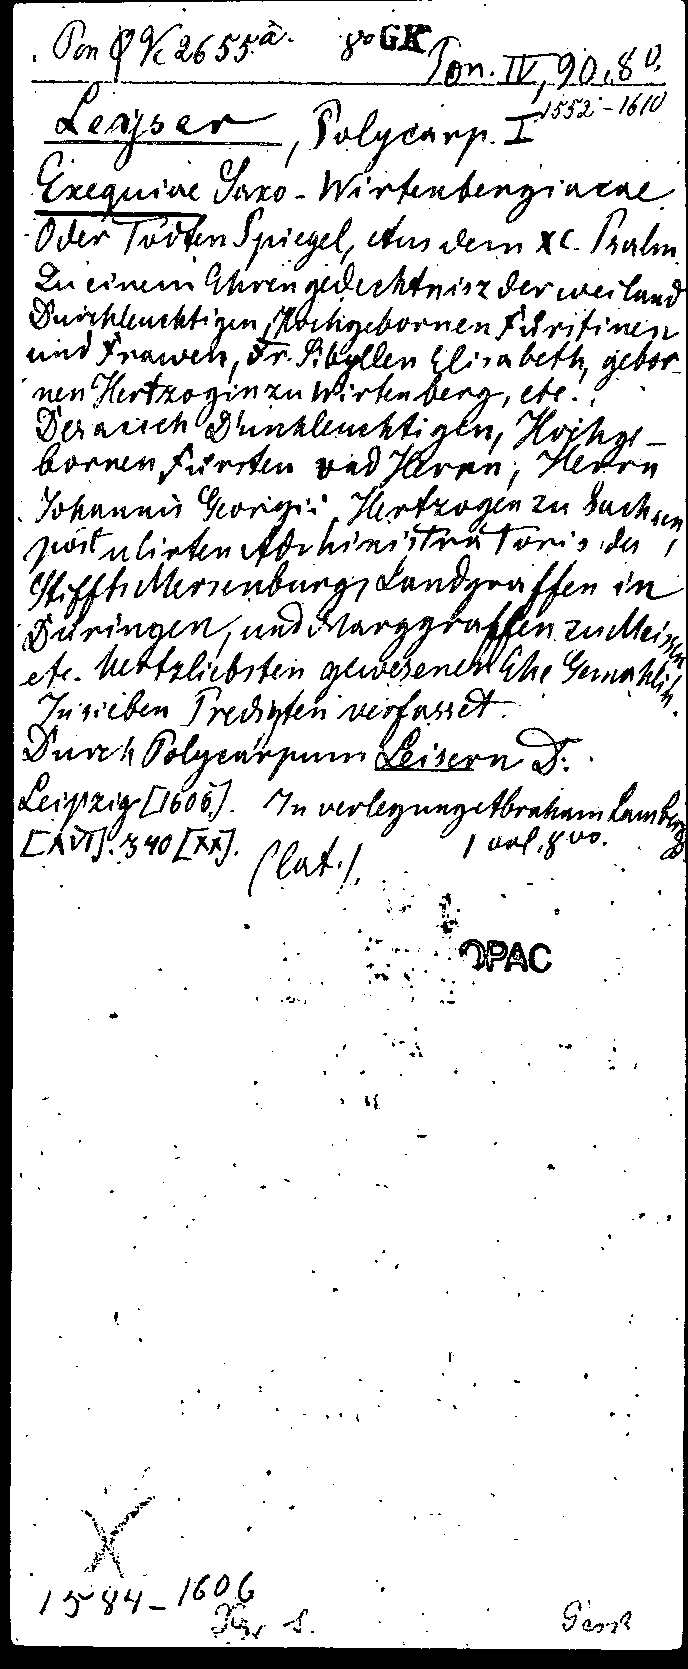 Pon Vc 2655ª. 8º GK
Pon. IV, 90, 8º.
Leyser, Polycarp. I 1552-1610
Exequiae Saxo-Wirtenbergiacae
Oder Todten Spiegel, Aus dem XC. Psalm
Zu einem Ehrengedechtnisz der weiland
Durchleuchtigen, Hochgebornen Fürstinen
und Frawen, Fr. Sibyllen Elisabeth, gebor-
nen Hertzogin zu Wirtenberg, etc.
Des auch Durchleuchtigen, Hochge-
bornen Fürsten und Herrn, Herrn
Johannis Georgii Hertzogen zu Sachsen,
postulirten Administratoris des
Stiffts Mersenburg, Landgraffen in
Düringen, und Marggraffen zu Meissen
etc. hertzliebsten gewesenen Ehe Gemahlin.
In sieben Predigten verfasset.
Durch Polycarpum Leisern D.
Leipzig [1606]. In verlegung Abraham Lamberg
[XVI]. 340 [XX]. 1 vol. 8vo.
(lat.).
OPAC
X
1584-1606